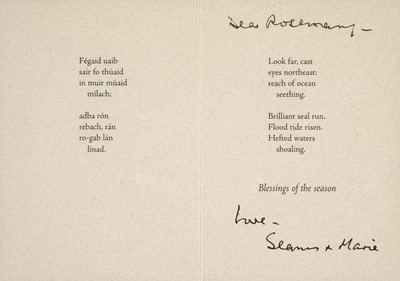 Fégaid uaib
sair fo thúaid
in muir múaid
mílach;
adba rón
rebach, rán
ro-gab lán
línad.
Dear Rosemary –
Look far, cast
eyes northeast:
reach of ocean
seething.
Brilliant seal run.
Flood tide risen.
Hefted waters
shoaling.
Blessings of the season
Love –
Seamus & Marie